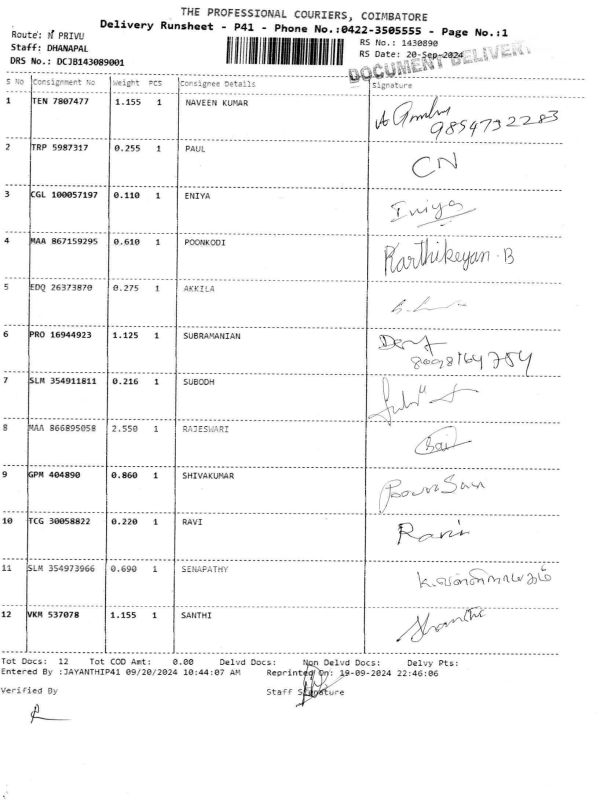 THE PROFESSIONAL COURIERS, COIMBATORE
Delivery Runsheet - P41 - Phone No.:0422-3505555 - Page No.:1
Route: N PRIVU
Staff: DHANAPAL
DRS No.: DCJB143089001
RS No.: 1430890
RS Date: 20-Sep-2024
DOCUMENT DELIVERY
S No Consignment No Weight PCS Consignee Details Signature
1 TEN 7807477 1.155 1 NAVEEN KUMAR
9854732283
2 TRP 5987317 0.255 1 PAUL CN
3 CGL 100057197 0.110 1 ENIYA Iniya
4 MAA 867159295 0.610 1 POONKODI Karthikeyan. B
5 EDQ 26373870 0.275 1 AKKILA
6 PRO 16944923 1.125 1 SUBRAMANIAN
8098164754
7 SLM 354911811 0.216 1 SUBODH
8 MAA 866895058 2.550 1 RAJESWARI Sai
9 GPM 404890 0.860 1 SHIVAKUMAR
10 TCG 30058822 0.220 1 RAVI Ravi
11 SLM 354973966 0.690 1 SENAPATHY
12 VKM 537078 1.155 1 SANTHI Shanthi
Tot Docs: 12 Tot COD Amt: 0.00 Delvd Docs: Non Delvd Docs: Delvy Pts:
Entered By :JAYANTHIP41 09/20/2024 10:44:07 AM Reprinted On: 19-09-2024 22:46:06
Verified By Staff Signature